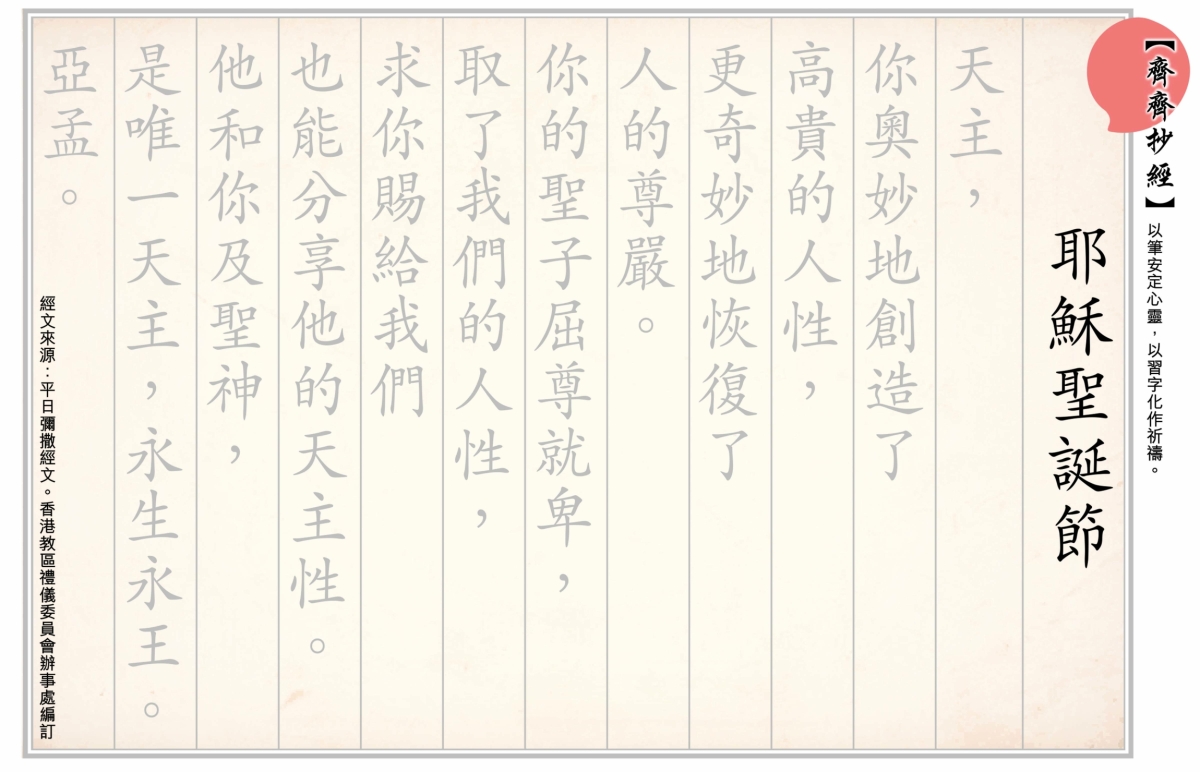 【齊齊抄經】以筆安定心靈，以習字化作祈禱。
耶穌聖誕節
天主，
你奧妙地創造了
高貴的人性，
更奇妙地恢復了
人的尊嚴。
你的聖子屈尊就卑，
取了我們的人性，
求你賜給我們
也能分享他的天主性。
他和你及聖神，
是唯一天主，永生永王。
亞孟。
經文來源：平日彌撒經文。香港教區禮儀委員會辦事處編訂